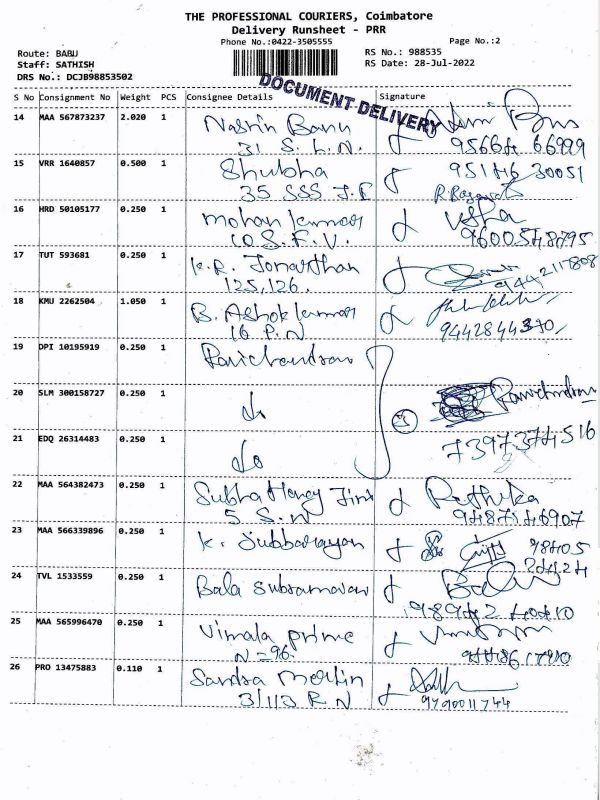 THE PROFESSIONAL COURIERS, Coimbatore
Delivery Runsheet - PRR
Phone No.:0422-3505555 Page No.:2
Route: BABU RS No.: 988535
Staff: SATHISH RS Date: 28-Jul-2022
DRS No.: DCJB98853502
DOCUMENT DELIVERY
S No Consignment No Weight PCS Consignee Details Signature
14 MAA 567873237 2.020 1 Nasrin Banu
31 S. L. N. 95664 66999
15 VRR 1640857 0.500 1 Shubha 95146 30051
35 SSS
16 HRD 50105177 0.250 1 Mohan Kumar Usha
10 S. F. V. 9600548795
17 TUT 593681 0.250 1 K. R. Jonarthan
125, 126. 9442117808
18 KMU 2262504 1.050 1 B. Ashok Kumar
16 P. N 9442844370
19 DPI 10195919 0.250 1 Ravichandran
20 SLM 300158727 0.250 1 do Ravichandran
21 EDQ 26314483 0.250 1 do 7397374516
22 MAA 564382473 0.250 1 Subha Honey Rethika
5 S. N 9487146907
23 MAA 566339896 0.250 1 K. Subbarayan 98405
24424
24 TVL 1533559 0.250 1 Bala Subramanian
98942 40410
25 MAA 565996470 0.250 1 Vimala prime
N = 96.
26 PRO 13475883 0.110 1 Sandra Merlin
3/113 R. N 9790011744